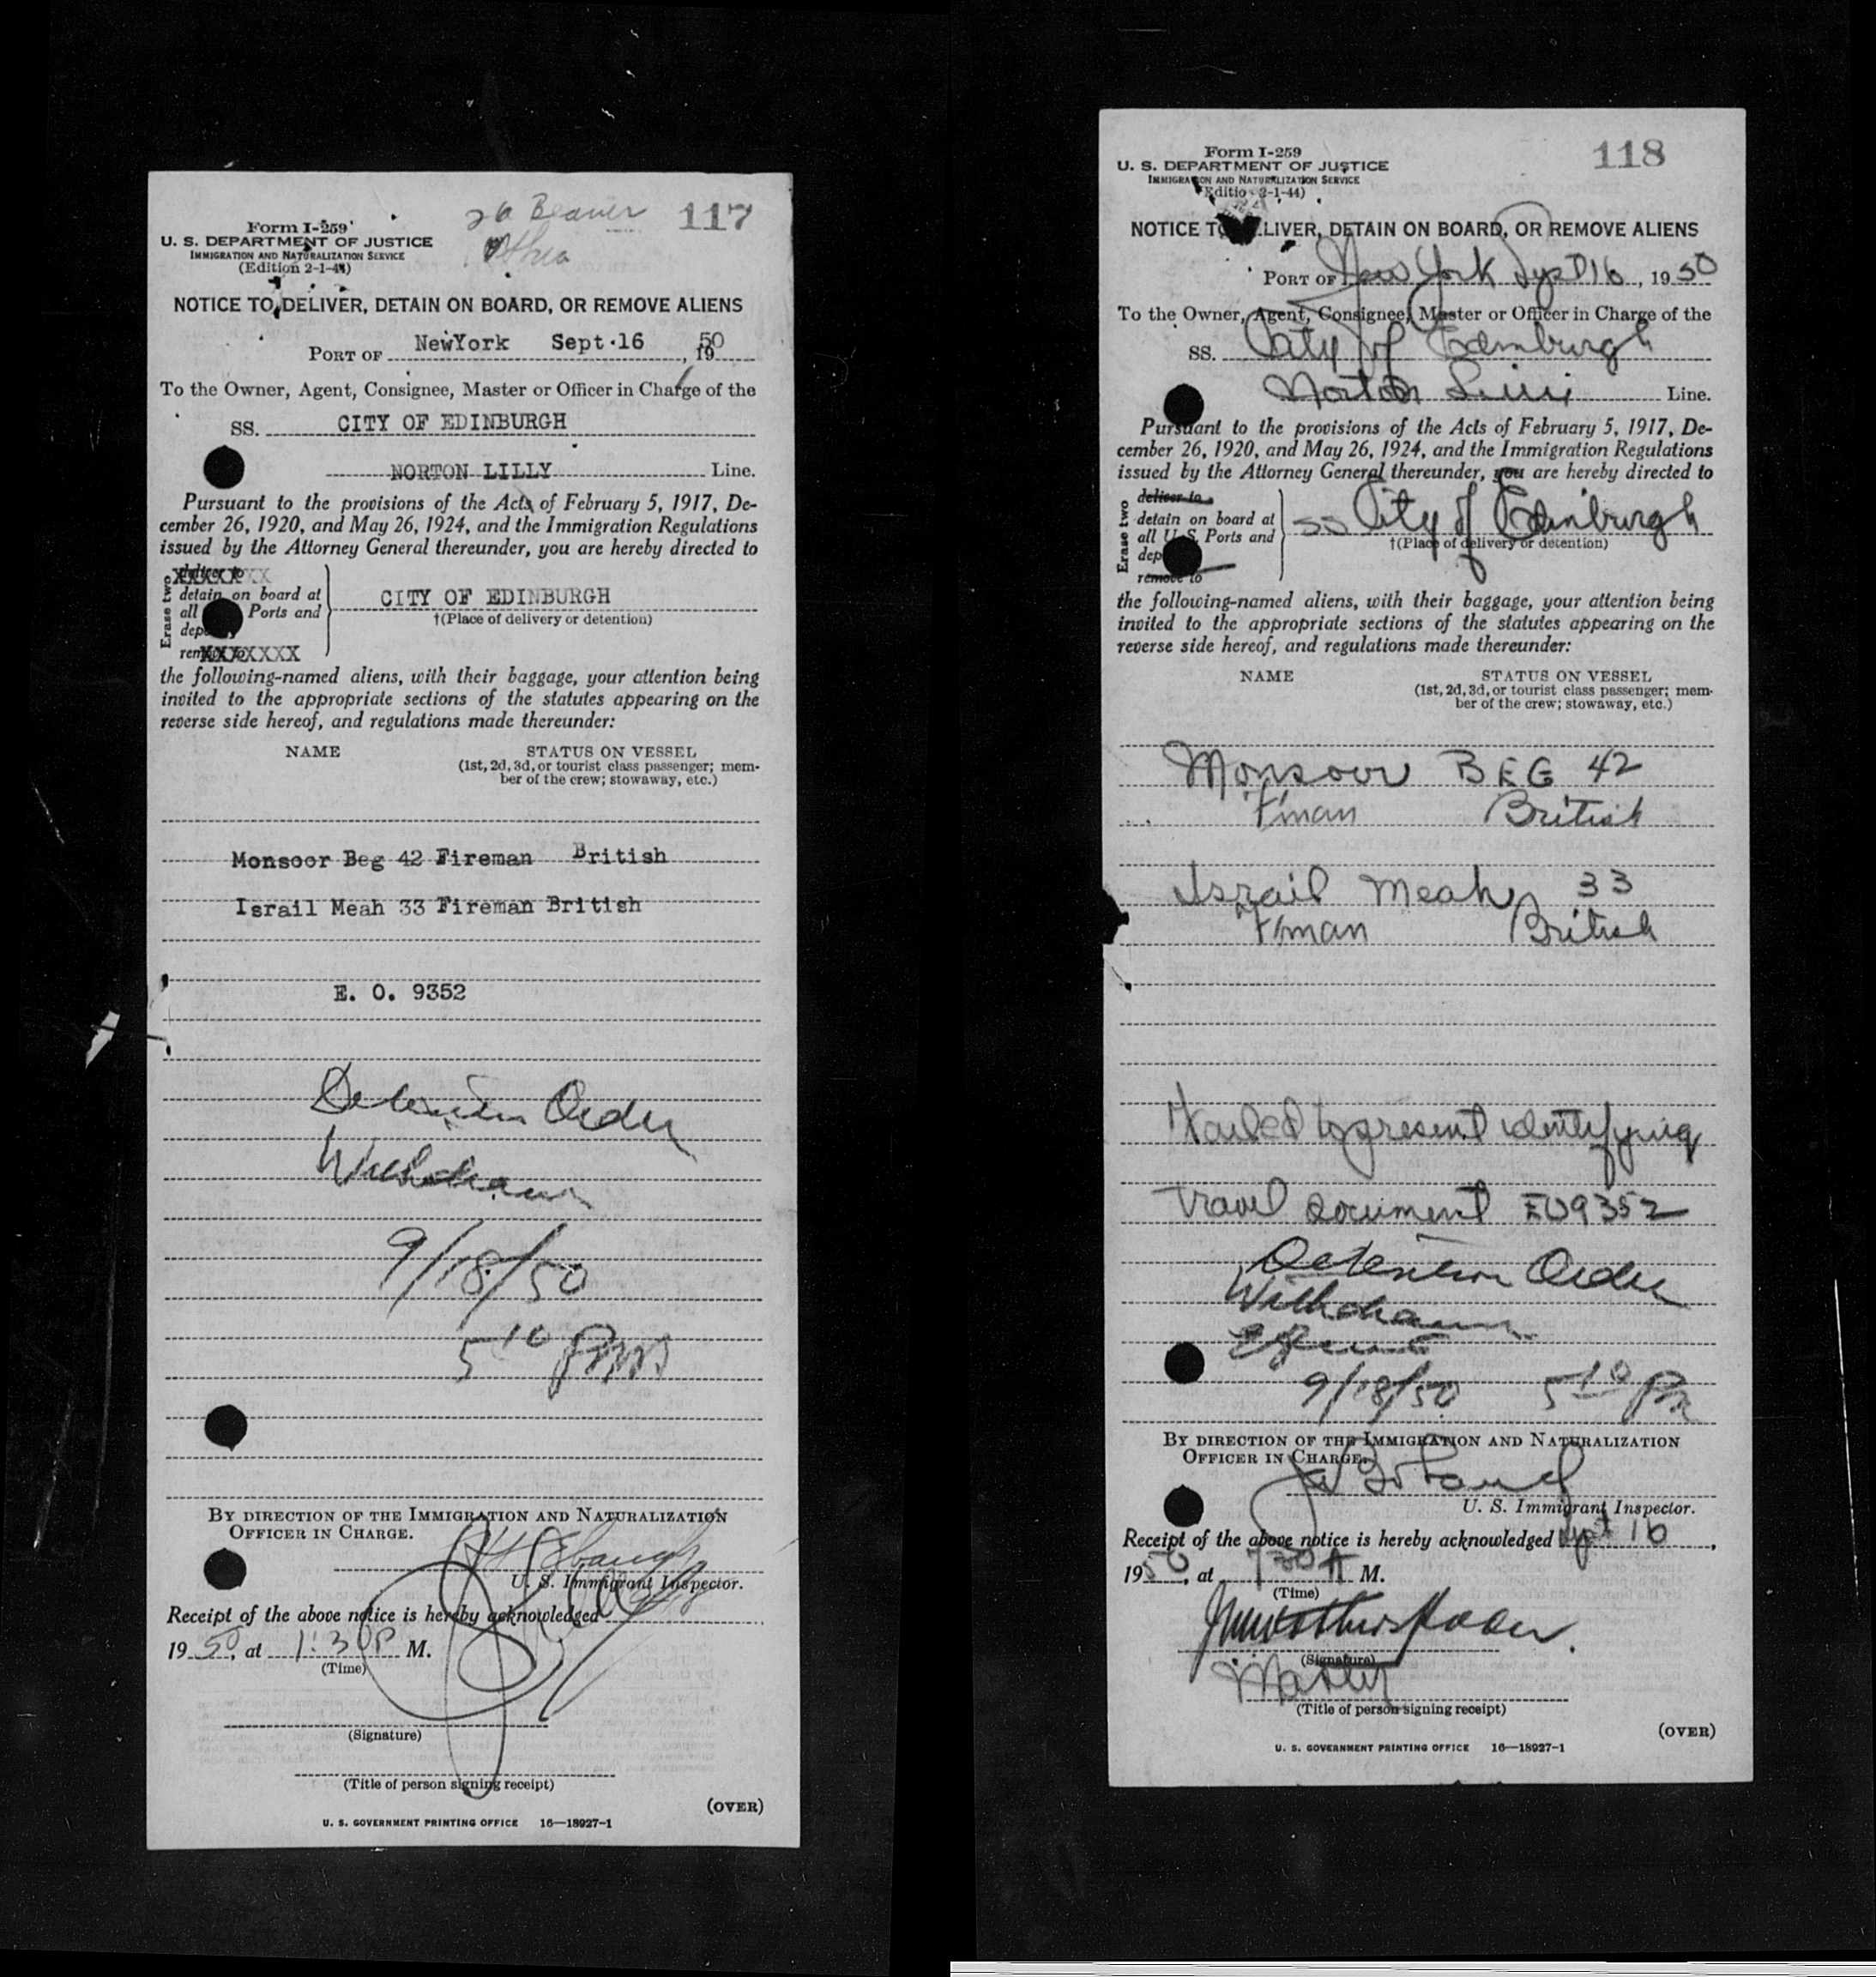 26 Beaver 117
Form I-259
U. S. DEPARTMENT OF JUSTICE
IMMIGRATION AND NATURALIZATION SERVICE
(Edition 2-1-44)
NOTICE TO DELIVER, DETAIN ON BOARD, OR REMOVE ALIENS
PORT OF NewYork Sept.16, 1950
To the Owner, Agent, Consignee, Master or Officer in Charge of the
SS. CITY OF EDINBURGH
NORTON LILLY Line.
Pursuant to the provisions of the Acts of February 5, 1917, De-
cember 26, 1920, and May 26, 1924, and the Immigration Regulations
issued by the Attorney General thereunder, you are hereby directed to
Erase two
deliver to
detain on board at
all Ports and
remove to
CITY OF EDINBURGH
†(Place of delivery or detention)
the following-named aliens, with their baggage, your attention being
invited to the appropriate sections of the statutes appearing on the
reverse side hereof, and regulations made thereunder:
NAME STATUS ON VESSEL
(1st, 2d, 3d, or tourist class passenger; mem-
ber of the crew; stowaway, etc.)
Monsoor Beg 42 Fireman British
Israil Meah 33 Fireman British
E. O. 9352
Detention Order
Withdrawn
9/18/50
5 10 PM
BY DIRECTION OF THE IMMIGRATION AND NATURALIZATION
OFFICER IN CHARGE.
U. S. Immigrant Inspector.
Receipt of the above notice is hereby acknowledged
1950, at 1:30P M.
(Time)
(Signature)
(Title of person signing receipt)
(OVER)
U. S. GOVERNMENT PRINTING OFFICE 16—18927-1
118
Form I-259
U. S. DEPARTMENT OF JUSTICE
IMMIGRATION AND NATURALIZATION SERVICE
(Edition 2-1-44)
NOTICE TO DELIVER, DETAIN ON BOARD, OR REMOVE ALIENS
PORT OF New York Sept 16, 1950
To the Owner, Agent, Consignee, Master or Officer in Charge of the
SS. City of Edinburgh
Norton Lilli Line.
Pursuant to the provisions of the Acts of February 5, 1917, De-
cember 26, 1920, and May 26, 1924, and the Immigration Regulations
issued by the Attorney General thereunder, you are hereby directed to
Erase two
deliver to
detain on board at
all U. S. Ports and
remove to
SS City of Edinburgh
†(Place of delivery or detention)
the following-named aliens, with their baggage, your attention being
invited to the appropriate sections of the statutes appearing on the
reverse side hereof, and regulations made thereunder:
NAME STATUS ON VESSEL
(1st, 2d, 3d, or tourist class passenger; mem-
ber of the crew; stowaway, etc.)
Monsoor BEG 42
F'man British
Israil Meah 33
F'man British
Failed to present identifying
travel document EO9352
Detention Order
Withdrawn
9/18/50 5 10 PM
BY DIRECTION OF THE IMMIGRATION AND NATURALIZATION
OFFICER IN CHARGE.
U. S. Immigrant Inspector.
Receipt of the above notice is hereby acknowledged Sept 16,
1950, at 730 A M.
(Time)
(Signature)
Master
(Title of person signing receipt)
(OVER)
U. S. GOVERNMENT PRINTING OFFICE 16—18927-1